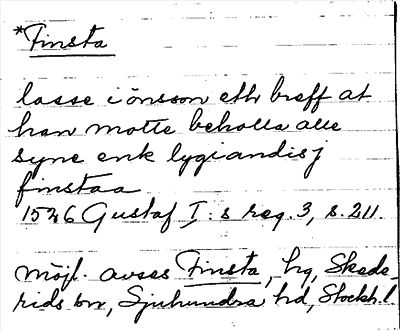 *Finsta
lasse iönsson eth breff at
han motte beholla alle
syne enk lygiandis j
finstaa
1526 Gustaf I:s reg. 3, s. 211.
möjl. avses Finsta, hg, Skede-
rids sn, Sjuhundra hd, Stockh. l.